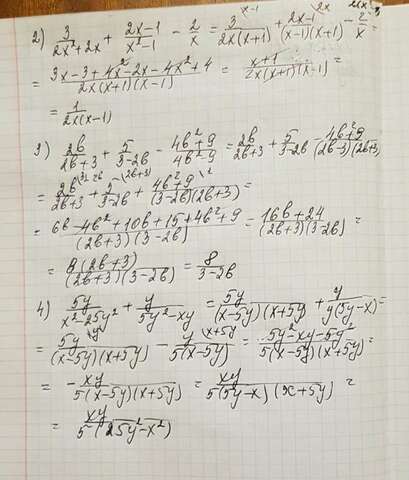 x-1 2x 2(x²-1)
2) 3/(2x²+2x) + (2x-1)/(x²-1) - 2/x = 3/(2x(x+1)) + (2x-1)/((x-1)(x+1)) - 2/x =
= (3x-3+4x²-2x-4x²+4)/(2x(x+1)(x-1)) = (x+1)/(2x(x+1)(x-1)) =
= 1/(2x(x-1))
3) 2b/(2b+3) + 5/(3-2b) - (4b²+9)/(4b²-9) = 2b/(2b+3) + 5/(3-2b) - (4b²+9)/((2b-3)(2b+3)) =
= 2b\(3-2b)/(2b+3) + 5\(2b+3)/(3-2b) + (4b²+9)\²/((3-2b)(2b+3)) =
= (6b-4b²+10b+15+4b²+9)/((2b+3)(3-2b)) = (16b+24)/((2b+3)(3-2b)) =
= 8(2b+3)/((2b+3)(3-2b)) = 8/(3-2b)
4) 5y/(x²-25y²) + y/(5y²-xy) = 5y/((x-5y)(x+5y)) + y/(y(5y-x)) =
= 5y/((x-5y)(x+5y)) - y\x+5y/(5(x-5y)) = (5y²-xy-5y²)/(5(x-5y)(x+5y)) =
= - xy/(5(x-5y)(x+5y)) = xy/(5(5y-x)(x+5y)) =
= xy/(5(25y²-x²))